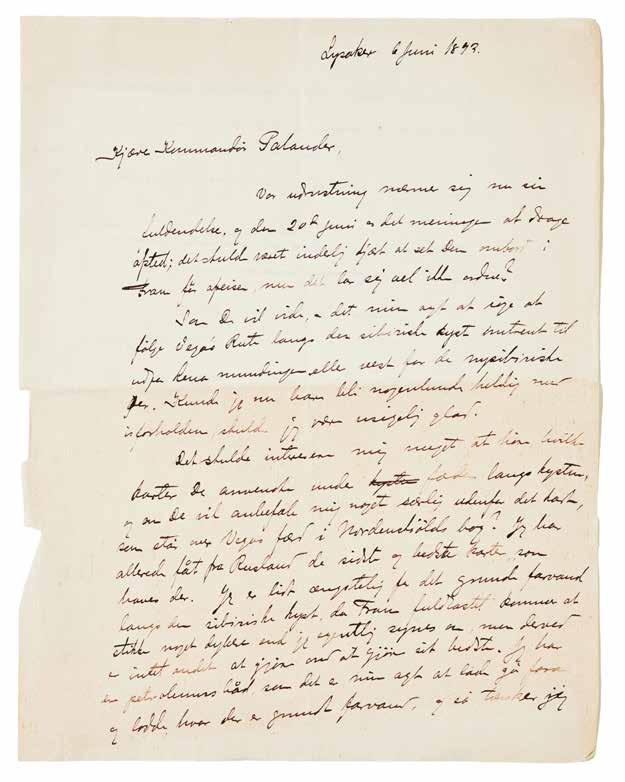 Lysaker 6 Juni 1893.
Kjære Kommandör Palander,
Vor udrustning nærme sig nu sin
fuldendelse, og den 20de Juni er det meningen at drage
afsted; det skuld været inderlig kjært at set Dem ombord i
Fram för afreisen, men det lar sig vel ikke ordne?
Som De vil vide, er det min agt at söge at
fölge Vegas Rute langs den sibiriske kyst omtrent til
udfor Lena mundingen eller vest for de nysibiriske
öer. Kunde jeg nu bare bli nogenlunde heldig med
isforholden, skuld jeg være usigelig glad.
Det skulde interessere mig meget at höre hvilke
karter De anvendte under kysten færden langs kysten,
og om De vil anbefale mig noget særlig udenfor det kart,
som står over Vegas færd i Nordenskiölds bog? Jeg har
allerede fåt fra Rusland de sidste og bedste karter, som
haves der. Jeg er lidt ængstelig for det grunde farvand
langs den sibiriske kyst, da Fram fuldlastet kommer at
stikke noget dybere end jeg egentlig synes om, men derved
er intet andet at gjöre end at gjöre sit bedste. Jeg har
en petroleums båd, som det er min agt at lade gå foran
og lodde, hvor der er grundt farvand, og så tænker jeg